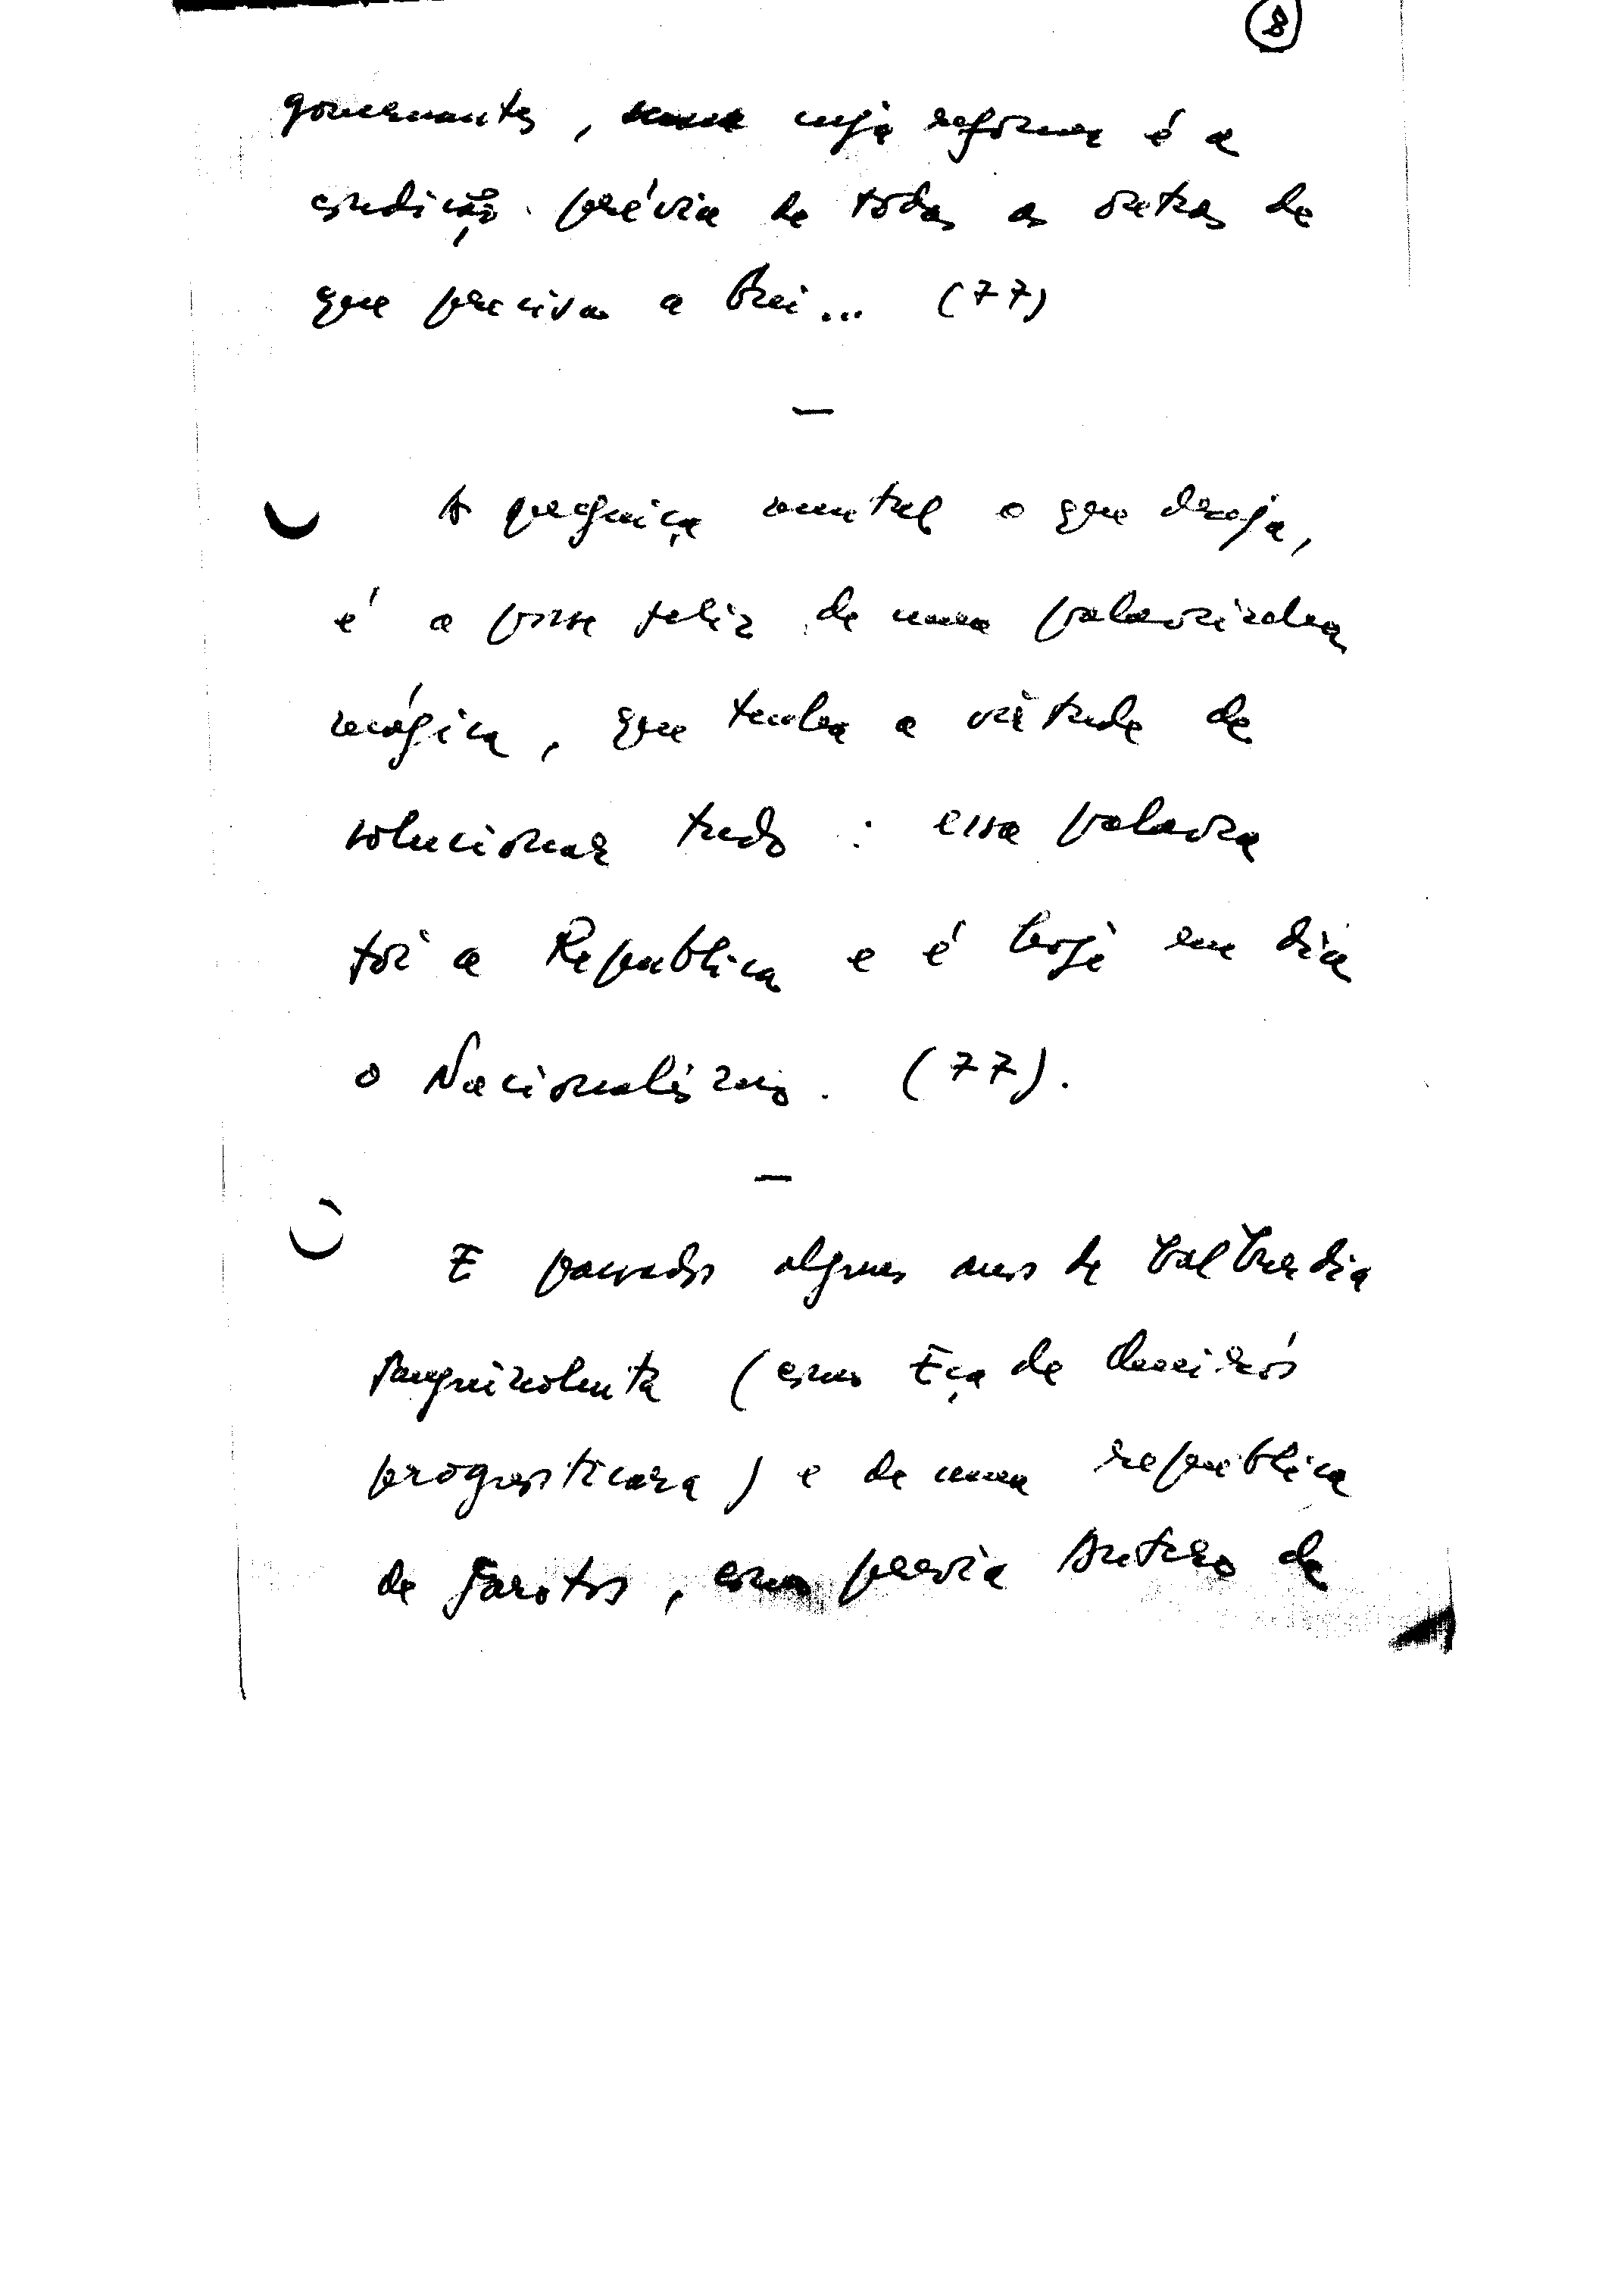 8
governantes, cuja reforma é a
condição prévia de todas as outras de
que precisa a Grei... (77)
—
A preguiça mental o que deseja,
é a posse feliz de uma palavrinha
mágica, que tenha a virtude de
solucionar tudo : essa palavra
foi a Republica e é hoje em dia
o Nacionalismo. (77).
—
E passados alguns anos de balbúrdia
sanguinolenta (como Eça de Queirós
prognosticara) e de uma república
de garotos, como previa Antero de